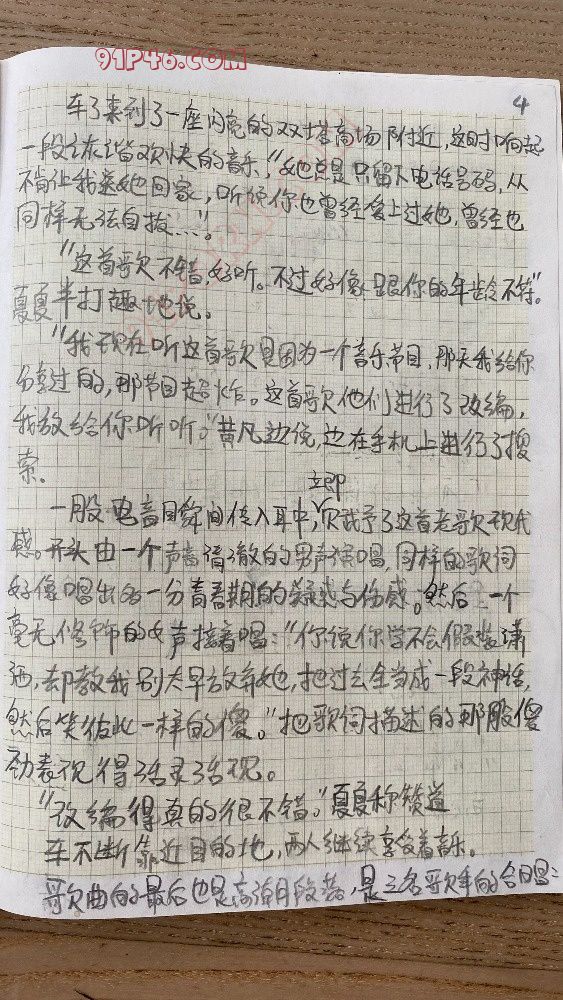 91P46.COM
4
车子来到了一座闪亮的双塔商场附近,这时响起
一段诙谐欢快的音乐,"她总是只留下电话号码,从
不肯让我送她回家,听说你也曾经爱上过她,曾经也
同样无法自拔……"。
"这首歌不错,好听。不过好像跟你的年龄不符"。
夏夏半打趣地说。
"我现在听这首歌是因为一个音乐节目,那天我给你
分享过的,那节目超火炸。这首歌他们进行了改编,
我放给你听听。"黄凡边说,边在手机上进行了搜
索。
立即
一股电音瞬间传入耳中,赋予了这首老歌现代
感。开头由一个声音清澈的男声演唱,同样的歌词
好像唱出的一分青春期的疑惑与伤感。然后一个
毫无修饰的女声接着唱:"你说你学不会假装潇
洒,却教我别太早放弃她,把过去全当成一段神话,
然后笑彼此一样的傻。"把歌词描述的那股傻
劲表现得活灵活现。
"改编得真的很不错。"夏夏称赞道
车不断靠近目的地,两人继续享受着音乐。
歌曲的最后也是高潮段落,是三名歌手的合唱: